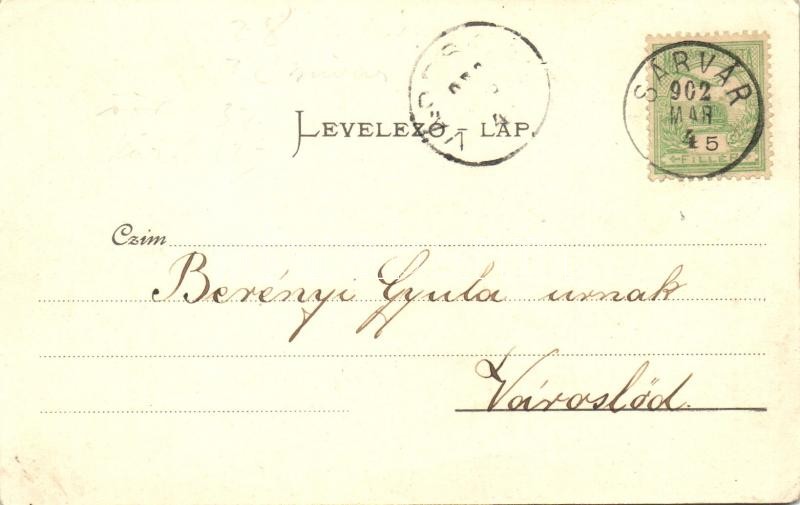 SÁRVÁR
902
MAR
4
5
FILLÉR
LEVELEZŐ-LAP.
Czim
Berényi Gyula urnak
Városlőd.